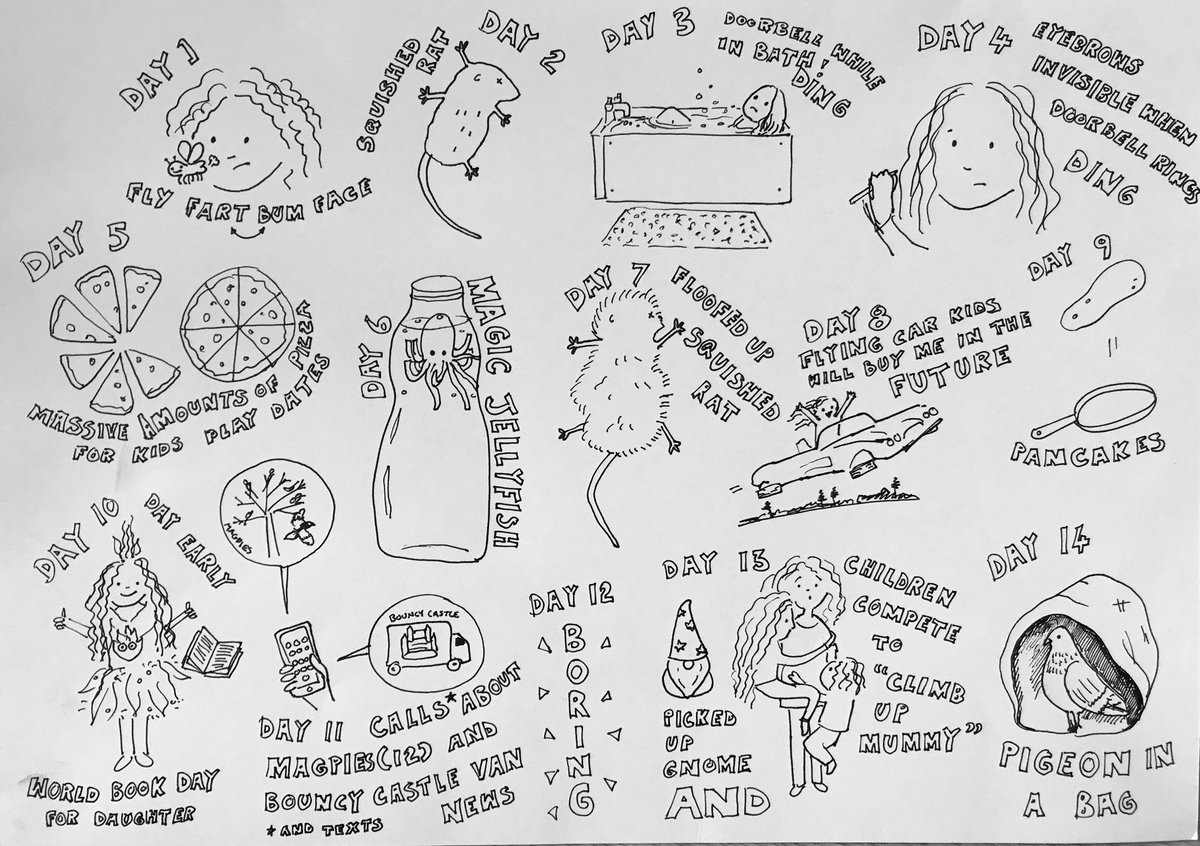 DAY 1
FLY FART BUM FACE
DAY 2
SQUISHED
RAT
DAY 3
DOORBELL WHILE
IN BATH!
DING
DAY 4
EYEBROWS
INVISIBLE WHEN
DOORBELL RINGS
DING
DAY 5
MASSIVE AMOUNTS OF PIZZA
FOR KIDS PLAY DATES
DAY 6
MAGIC JELLYFISH
DAY 7
FLOOFED UP
SQUISHED
RAT
DAY 8
FLYING CAR KIDS
WILL BUY ME IN THE
FUTURE
DAY 9
PANCAKES
DAY 10
DAY EARLY
WORLD BOOK DAY
FOR DAUGHTER
MAGPIES
BOUNCY CASTLE
DAY 11 CALLS* ABOUT
MAGPIES (12) AND
BOUNCY CASTLE VAN
NEWS
*AND TEXTS
DAY 12
BORING
DAY 13
PICKED
UP
GNOME
AND
CHILDREN
COMPETE
TO
“CLIMB
UP
MUMMY”
DAY 14
PIGEON IN
A BAG